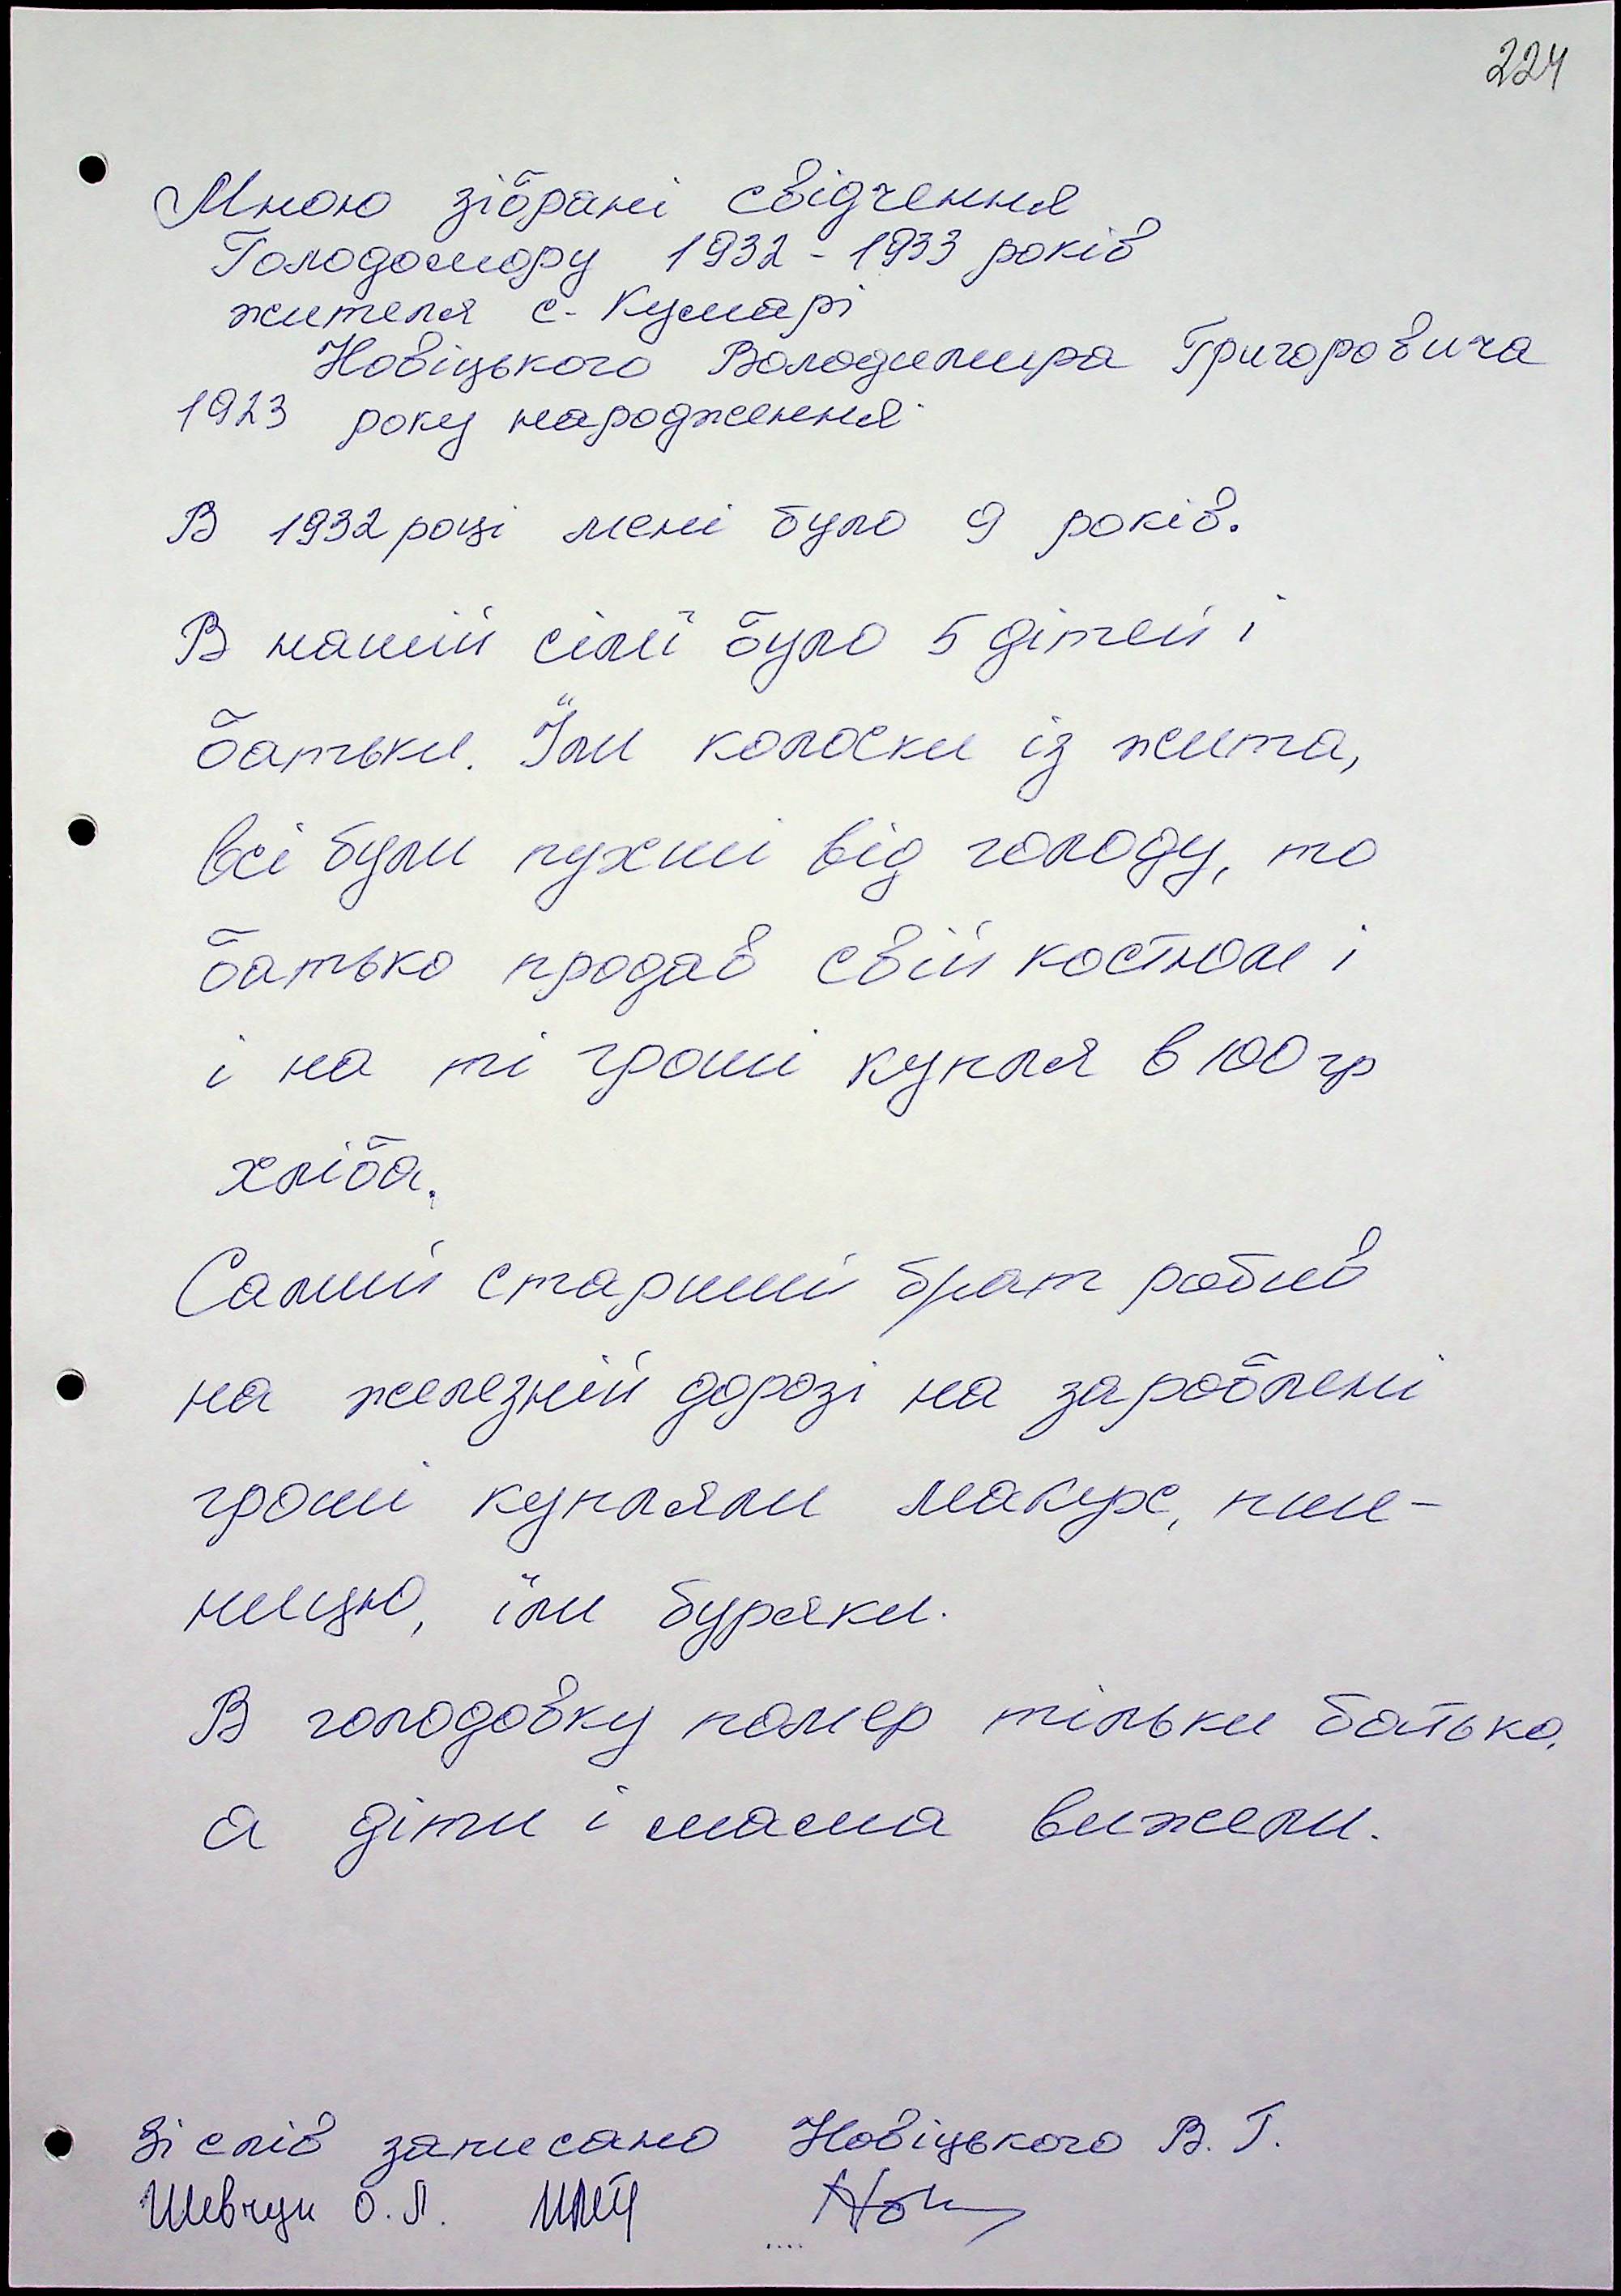 224
Мною зібрані свідчення
Голодомору 1932 - 1933 років
жителя с. Кумарі
Новіцького Володимира Григоровича
1923 року народження.
В 1932 році мені було 9 років.
В нашій сімї було 5 дітей і
батьки. Їли колоски із жита,
всі були пухлі від голоду, то
батько продав свій костюм і
і на ті гроші купляв 100 гр
хліба.
Самий старший брат робив
на железній дорозі на зароблені
гроші купляли макух, пше-
ницю, їли буряки.
В голодовку помер тільки батько,
а діти і мама вижели.
Зі слів записано Новіцького В. Г.
Шевчук О. Л.